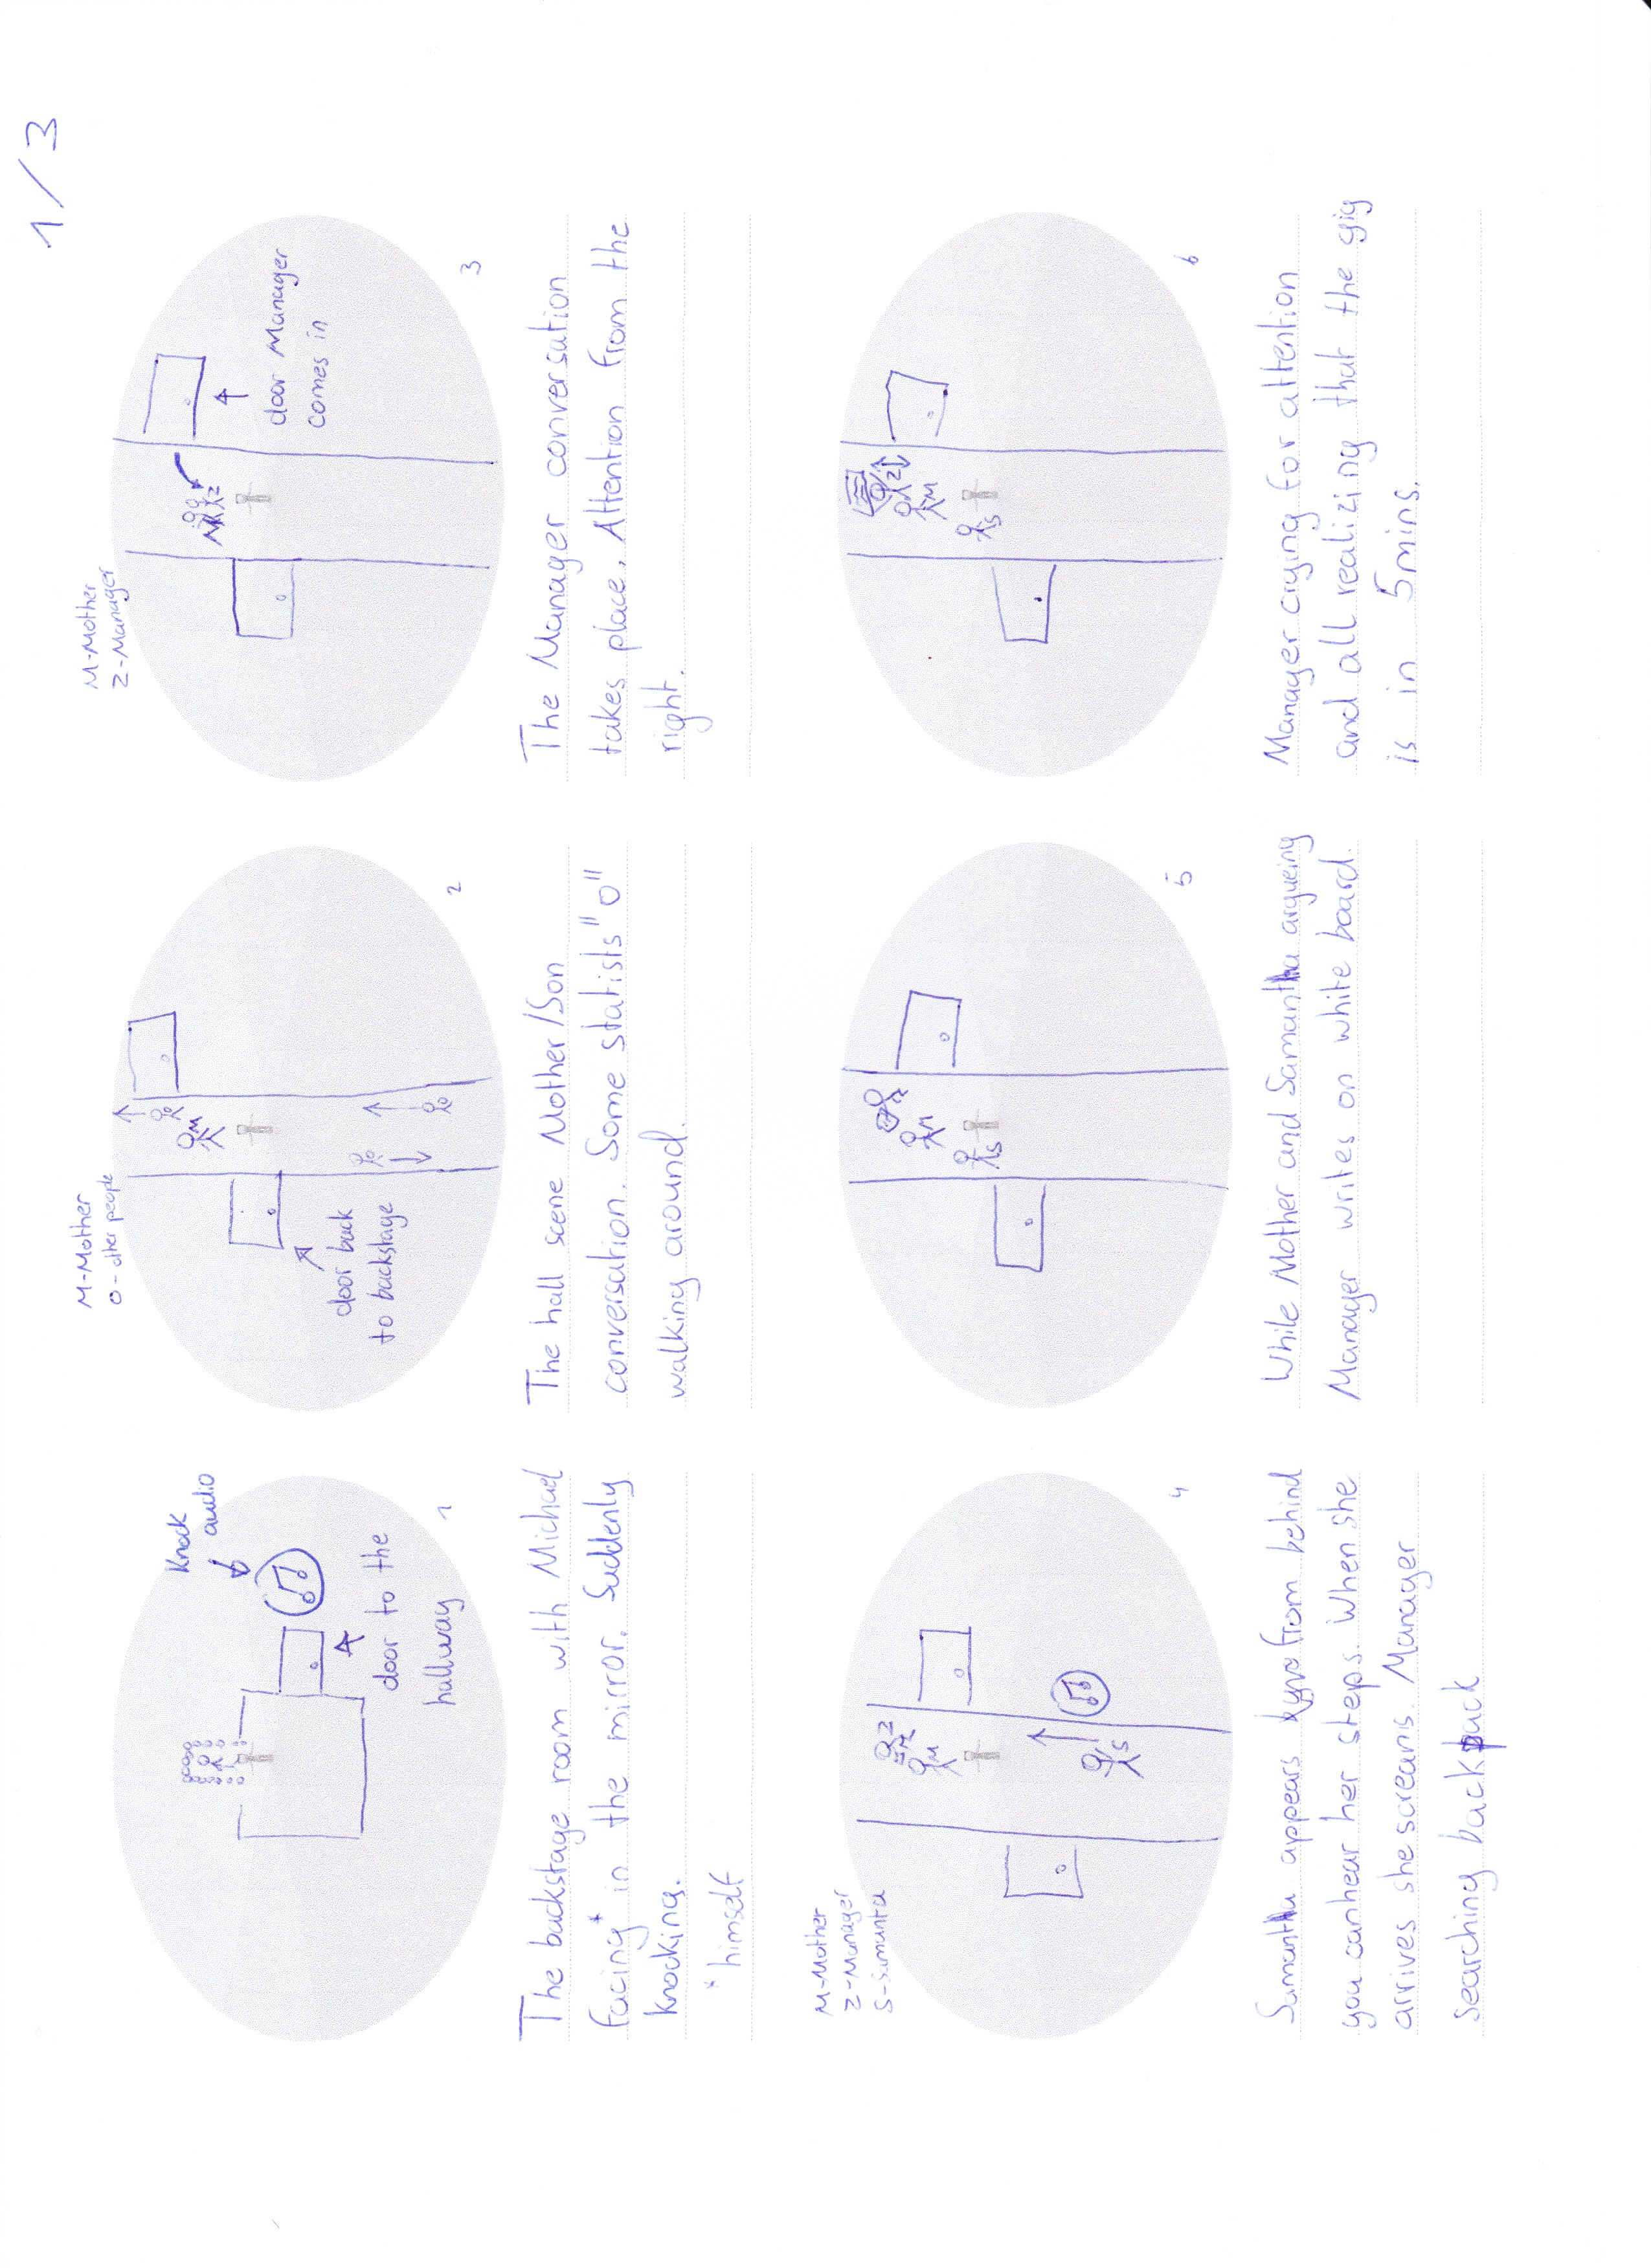 1/3
Knock
audio
door to the
hallway
1
The backstage room with Michael
facing* in the mirror. Suddenly
knocking.
*himself
M-Mother
O-other people
M
door back
to backstage
2
The hall scene Mother/Son
conversation. Some statists "O"
walking around.
M-Mother
Z-Manager
M Z
door Manager
comes in
3
The Manager conversation
takes place. Attention from the
right.
M-Mother
Z-Manager
S-Samanta
Z
M
S
4
Samantha appears from behind
you can hear her steps. When she
arrives she screams. Manager
searching backpack
Z
M
S
5
While Mother and Samantha argueing
Manager writes on white board.
Z
M
S
6
Manager crying for attention
and all realizing that the gig
is in 5mins.